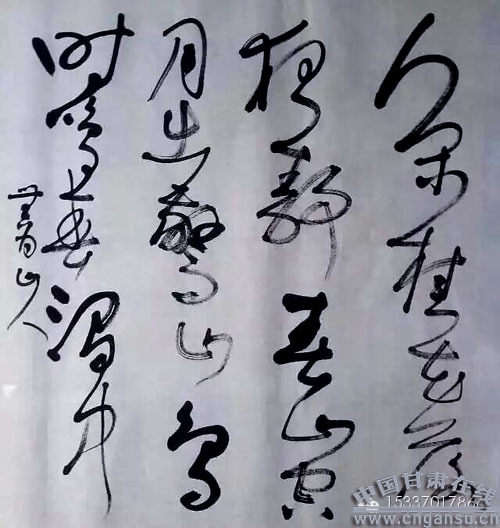 人闲桂花落
夜静春山空
月出驚山鸟
时鸣春涧中
山人
中国甘肃在线
www.cngansu.cn